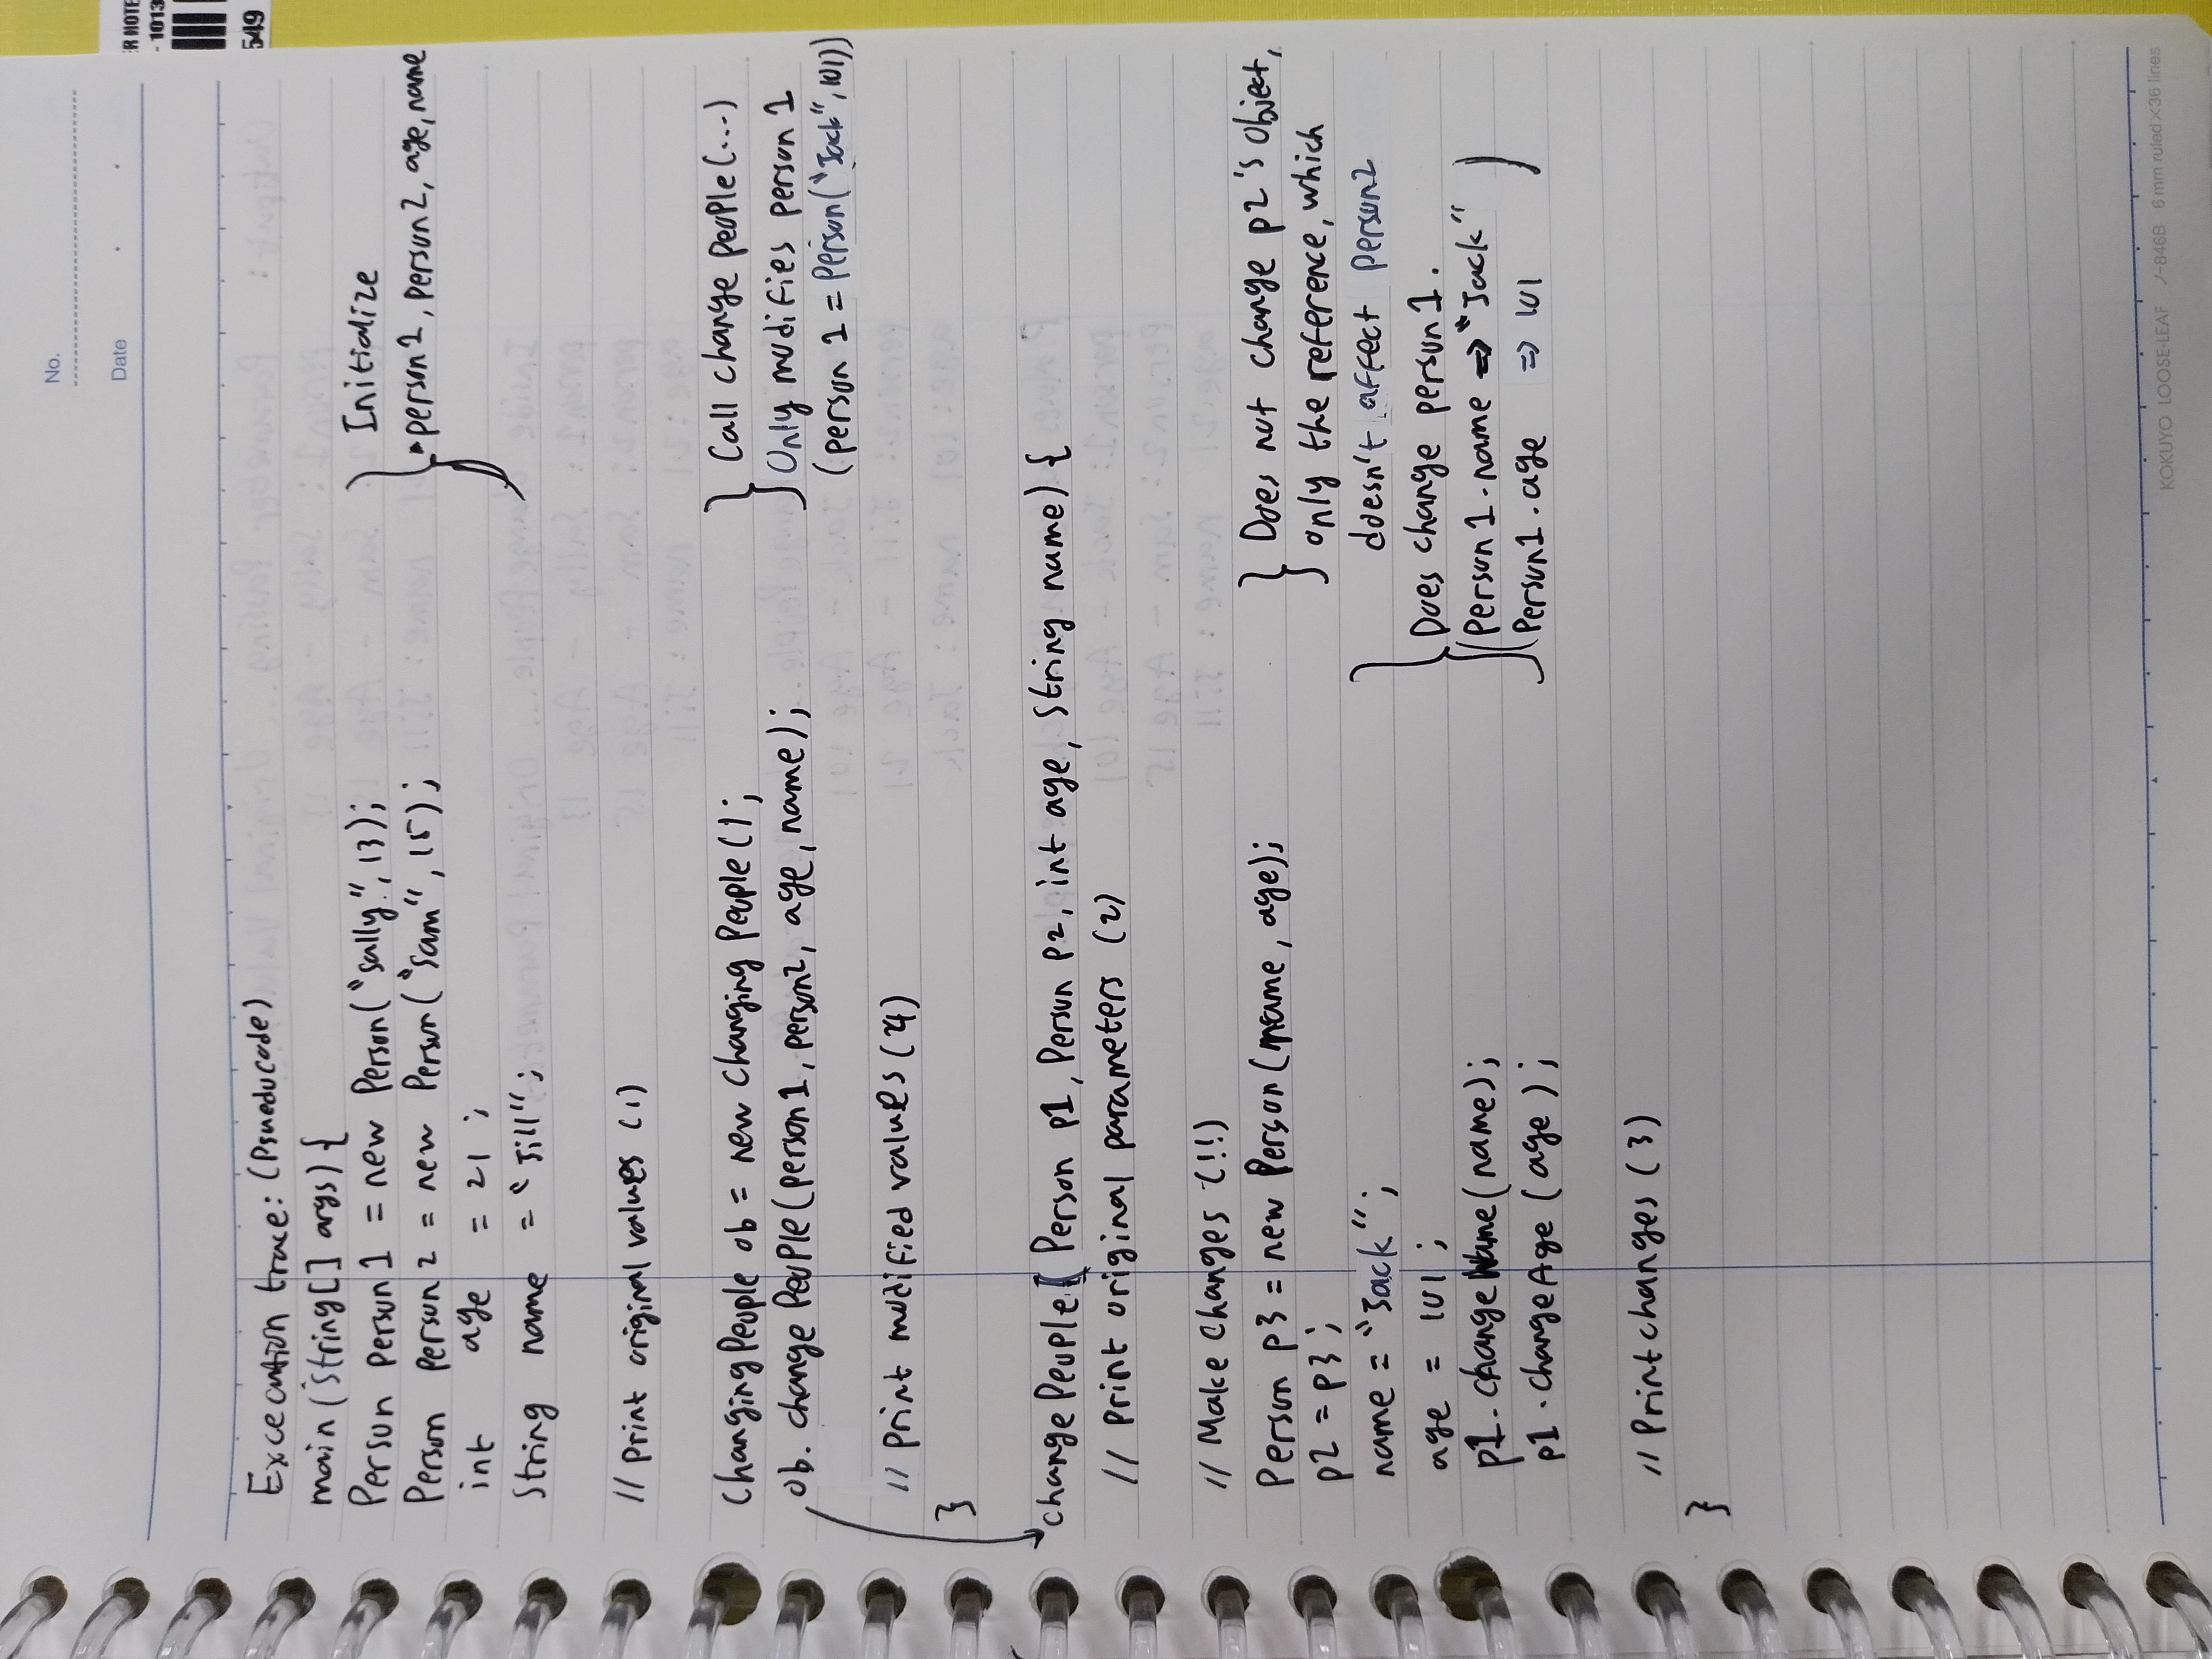 No.
Date
R NOTE
- 1013
549
Excecution trace: (Psueducode)
main (String[] args) {
Person person1 = new Person("Sally", 13);
Person person2 = new Person("Sam", 15);
int age = 21 ;
String name = "Jill";
} Initialize
person1, person2, age, name
// Print original values (1)
ChangingPeople ob = new Changing People();
ob. change People(person1, person2, age, name);
} Call change people(...)
Only modifies person 1
(person 1 = Person("Jack", 101))
// Print modified values (4)
}
changePeople( Person p1, Person p2, int age, String name) {
// Print original parameters (2)
// Make changes (!!)
Person p3 = new Person(name, age);
p2 = p3 ;
} Does not change p2's object,
only the reference, which
doesn't affect person2
name = "Jack";
age = 101 ;
p1. changeName(name);
p1 . changeAge (age );
} Does change person1.
(Person1.name => "Jack"
Person1.age => 101 )
// Print changes (3)
}
KOKUYO LOOSE-LEAF ノ-846B 6 mm ruled×36 lines